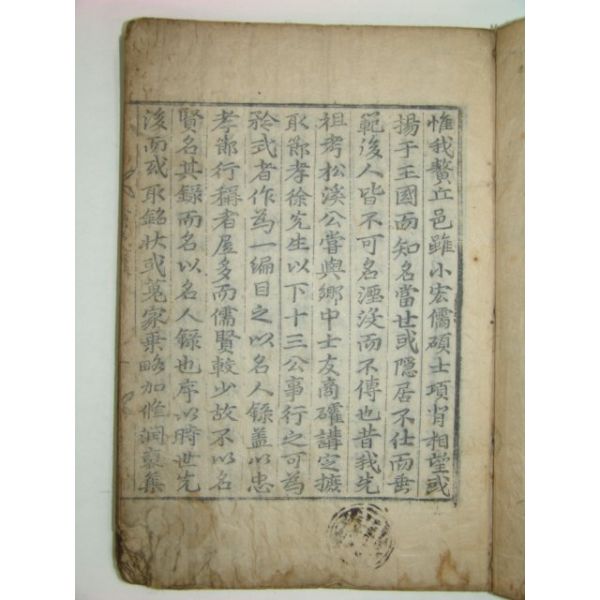 惟我鰲丘邑雖小宏儒碩士項背相望或
揚于王國而知名當世或隱居不仕而垂
範後人皆不可名湮沒而不傳也昔我先
祖考松溪公嘗與鄉中士友商確講定摭
取節孝徐先生以下十三公事行之可為
矜式者作為一編目之以名人錄盖以忠
孝節行稱者居多而儒賢較少故不以名
賢名其錄而名以名人錄也序以時世先
後而或取銘狀或蒐家乘略加脩潤裒集